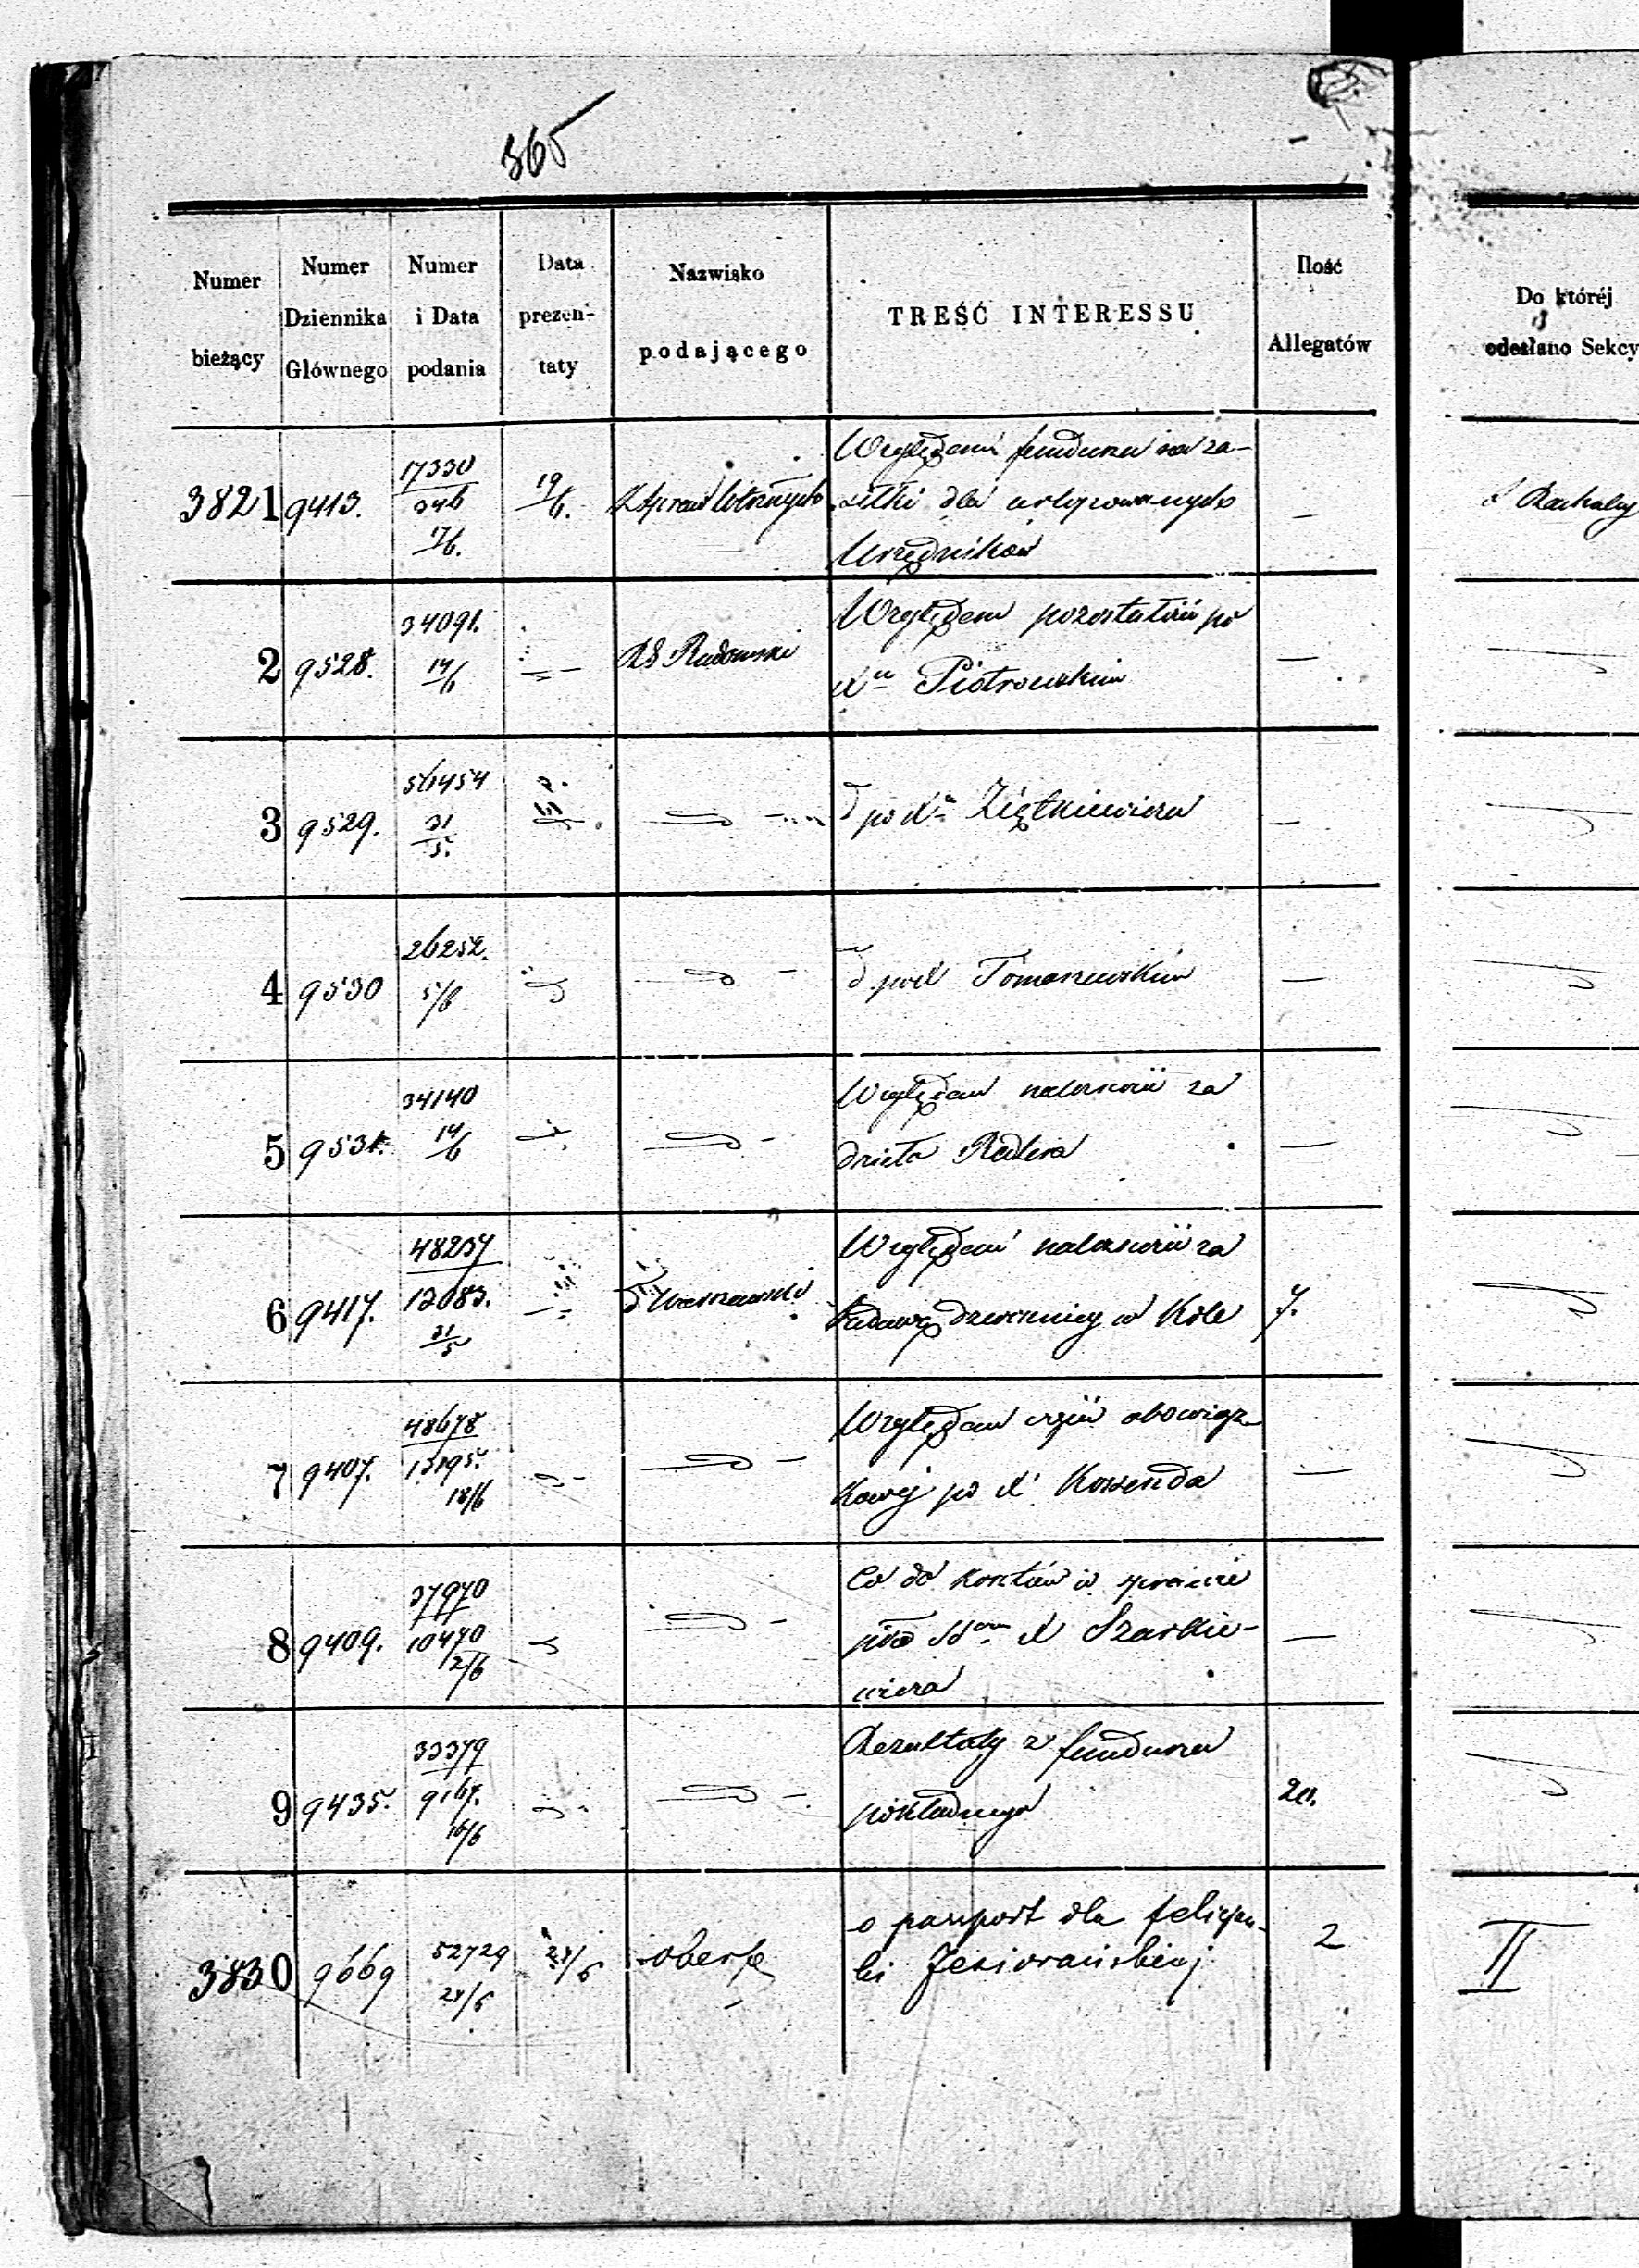 365
Numer bieżący
Numer Dziennika Głównego
Numer i Data podania
Data prezen- taty
Nazwisko podającego
TREŚĆ INTERESSU
Ilość Allegatów
Do któréj odesłano Sekcy
3821 9413. 17330 19/6.
Względem funduszu na za-
siłki dla urlopowanych
Urzędników
—
2 9528. 34091. 14/6 RG Radomski
Względem pozostałości po
Xu Piotrowskim
—
3 9529. 56454 31/5.
po Xu Ziętkiewiczu
—
4 9530 26252. 5/6
po X Tomaszewskim
—
5 9531. 34140 14/6
Względem należności za
dzieła Redlera
—
6 9417. 48237 12083. 31/5 Warszawski
Względem należności za
budowę dzwonnicy w Kole
7.
7 9407. 48678 13195. 18/6
Względem obowiąz-
kowej po X Kossenda
—
8 9409. 37970 10470 2/6
Co do kosztów w sprawie
X Szarkie-
wicza
—
9 9435. 33379 9167. 16/6
Rezultaty z funduszu
pokładnego
20.
3830 9669 52729 24/6
o passport dla Felicyan-
ki Jeziorańskiej
2
II